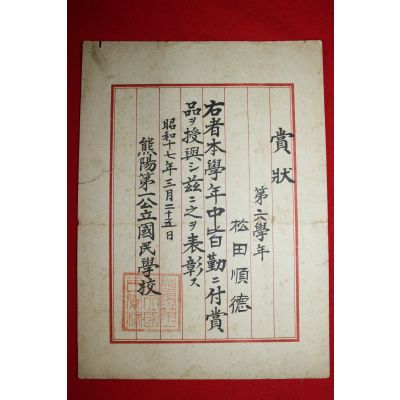 賞狀
第六學年
松田順德
右者本學年中皆勤ニ付賞
品ヲ授與シ玆ニ之ヲ表彰ス
昭和十七年三月二十五日
熊陽第一公立國民學校